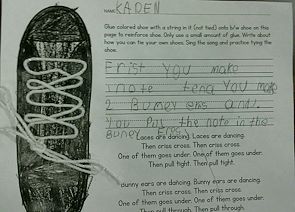 NAME: KADEN
Glue colored shoe with a string in it (not tied) onto b/w shoe on this
page to reinforce shoe. Only use a small amount of glue. Write about
how you can tie your own shoes. Sing the song and practice tying the
shoe.
Frist you make
1 note tend you make
2 Bumey ers and.
You Put the note in the
Buney Ers.
Laces are dancing. Laces are dancing.
Then criss cross. Then criss cross.
One of them goes under. One of them goes under.
Then pull tight. Then pull tight.
Bunny ears are dancing. Bunny ears are dancing.
Then criss cross. Then criss cross.
One of them goes under. One of them goes under.
Then pull through. Then pull through.